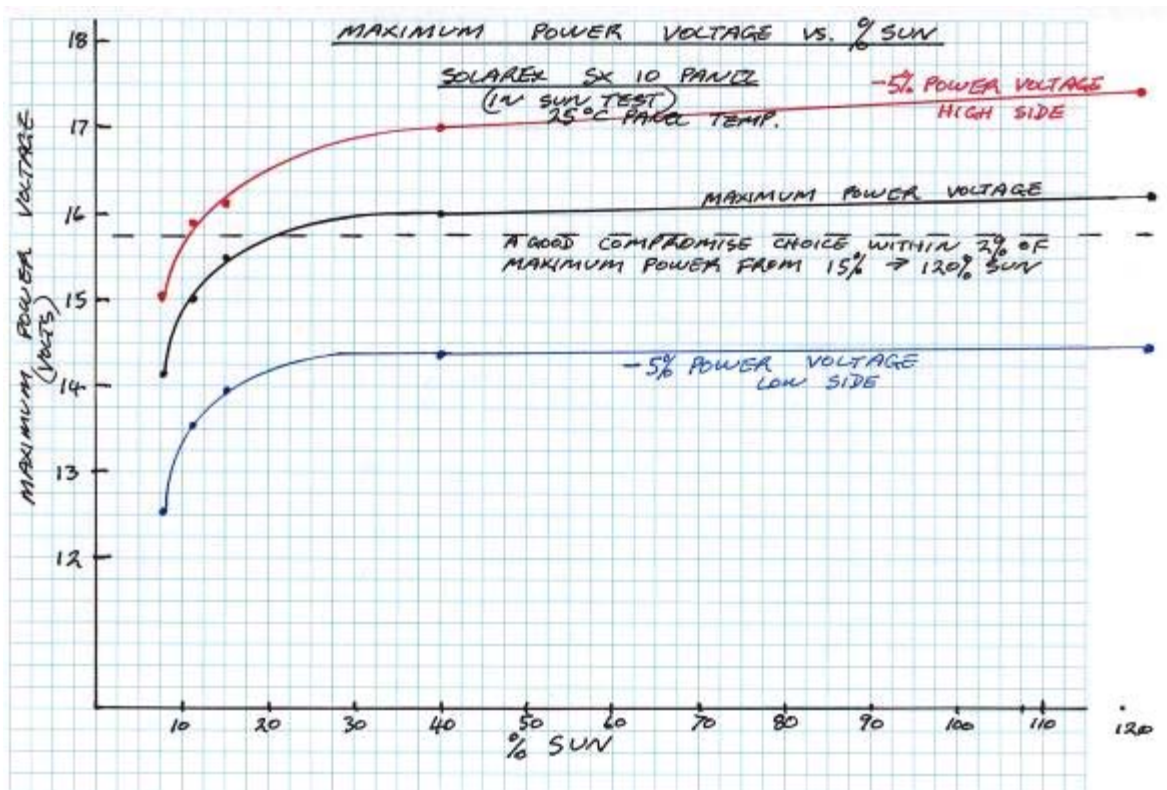 MAXIMUM POWER VOLTAGE VS. % SUN
SOLAREX SX 10 PANEL
(IN SUN TEST)
25°C PANEL TEMP.
-5% POWER VOLTAGE
HIGH SIDE
MAXIMUM POWER VOLTAGE
A GOOD COMPROMISE CHOICE WITHIN 2% OF
MAXIMUM POWER FROM 15% → 120% SUN
-5% POWER VOLTAGE
LOW SIDE
MAXIMUM POWER VOLTAGE
(VOLTS)
18
17
16
15
14
13
12
10 20 30 40 50 60 70 80 90 100 110 120
% SUN